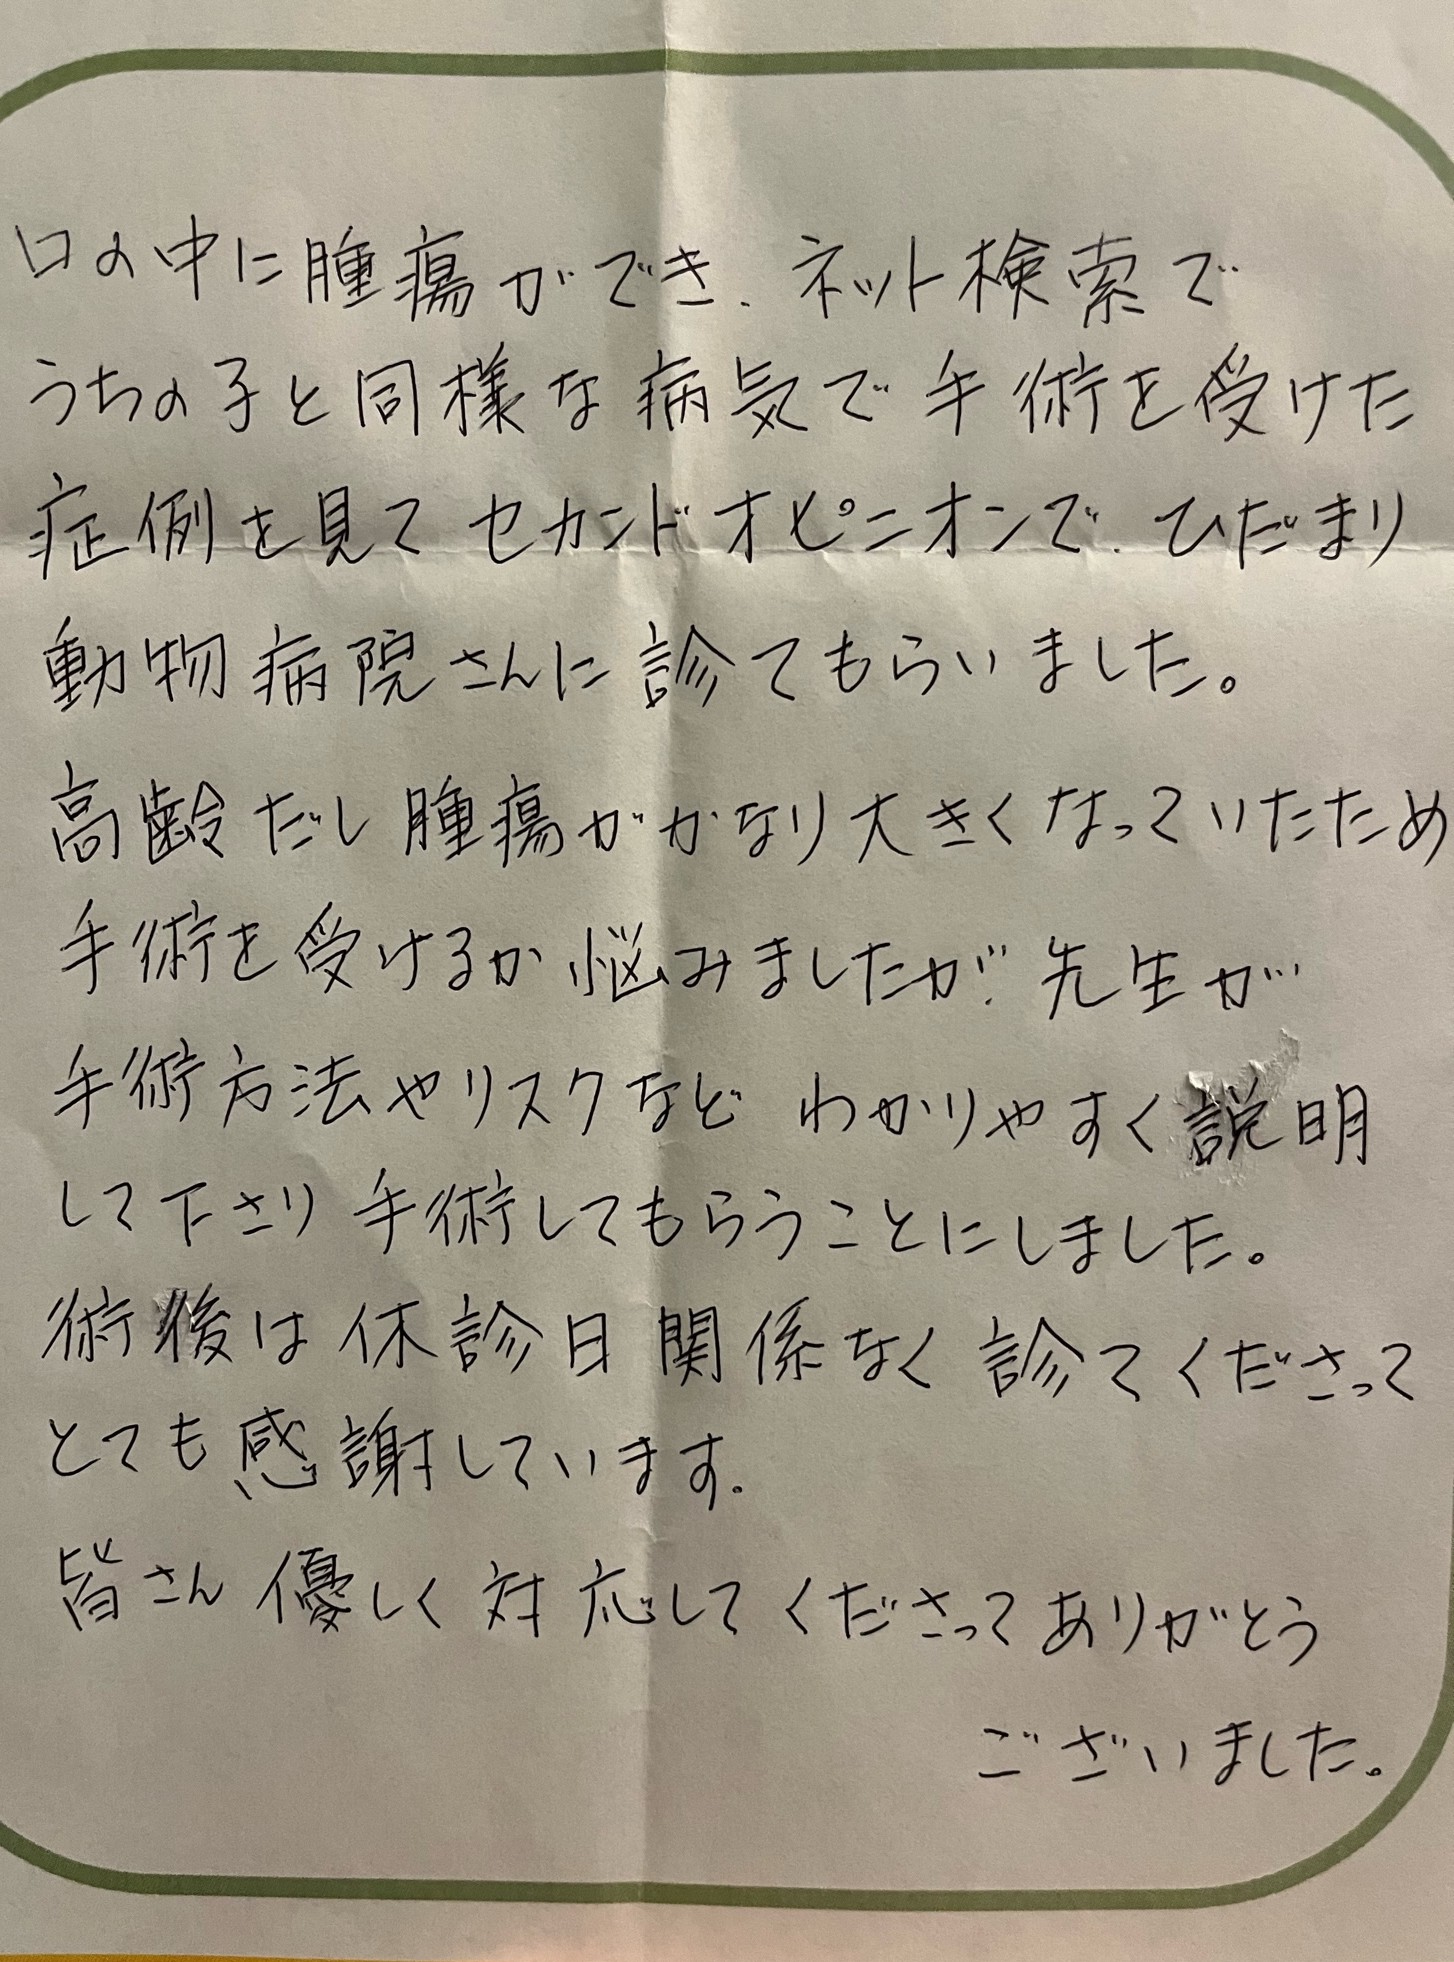 口の中に腫瘍ができ、ネット検索で
うちの子と同様な病気で手術を受けた
症例を見てセカンドオピニオンで、ひだまり
動物病院さんに診てもらいました。
高齢だし腫瘍がかなり大きくなっていたため
手術を受けるか悩みましたが、先生が
手術方法やリスクなど わかりやすく説明
して下さり 手術してもらうことにしました。
術後は休診日関係なく診てくださって
とても感謝しています。
皆さん優しく対応してくださってありがとう
ございました。